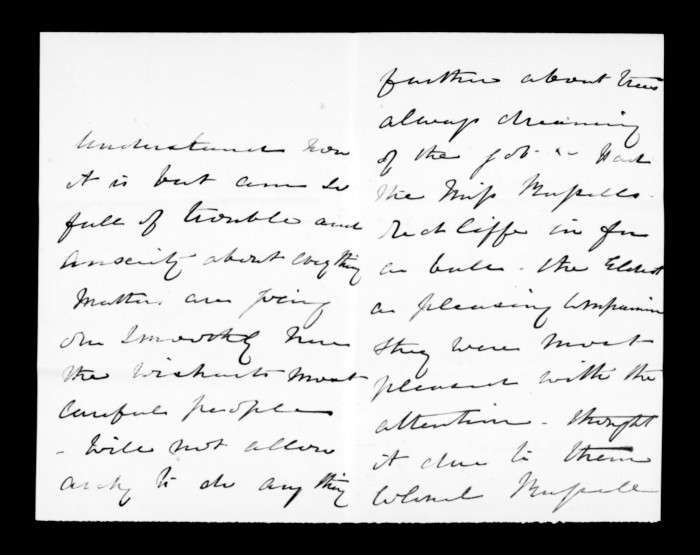 understand how
it is but am so
full of trouble and
anxiety about everything
Matters are going
on Smoothly here
the Wisharts most
careful people
- Will not allow
to do any thing
further about this
always dreaming
of the job -
the Miss Russells
in for
a ball - the Eldest
a pleasing Companion
they were most
pleased with the
attention - thought
it due to them
Colonel Russell